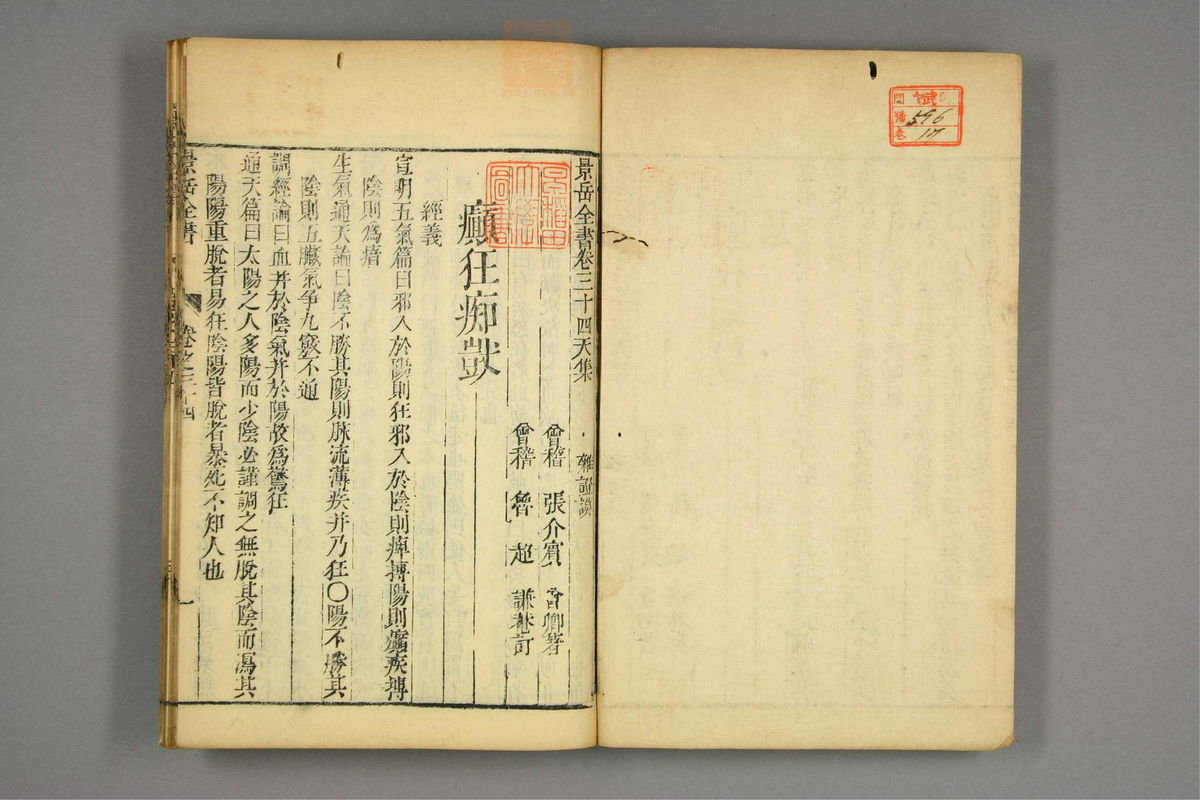 596
17
景岳全書卷三十四天集 雜證謨
會稽 張介賓 會卿著
會稽 魯 超 謙菴訂
早稻田
大學
圖書
癲狂痴獃
經義
宣明五氣篇曰邪入於陽則狂邪入於陰則痺搏陽則癲疾搏
陰則爲瘖
生氣通天論曰陰不勝其陽則脉流薄疾并乃狂〇陽不勝其
陰則五臟氣争九竅不通
調經論曰血并於陰氣并於陽故爲驚狂
通天篇曰太陽之人多陽而少陰必謹調之無脫其陰而瀉其
陽陽重脫者易狂陰陽皆脫者暴死不知人也
景岳全書 卷之三十四